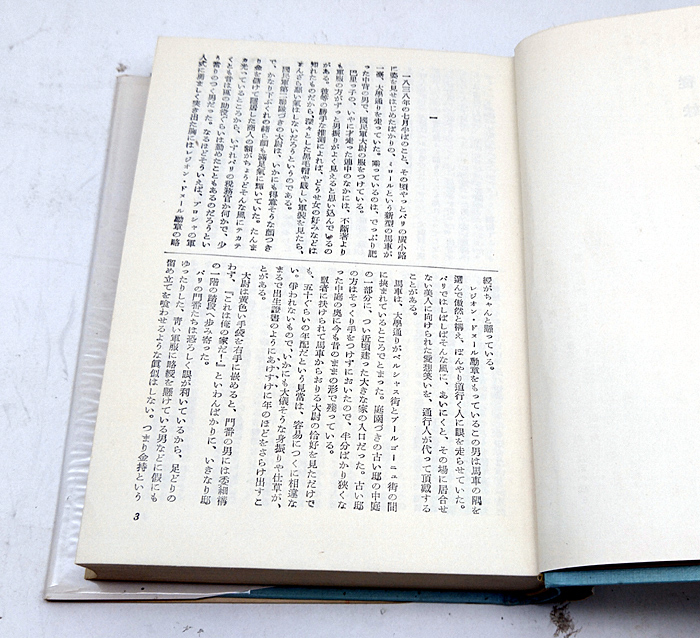 一
一八三八年の七月半ばのこと、その頃やっとパリの廣小路
に姿を見せはじめたばかりの、ミロールという新型の馬車が
一臺、大學通りを走っていた。乘っているのは、でっぷり肥
った中背の男で、國民軍大尉の服をつけている。
巴里っ子の、いやに才走った連中のなかには、不斷着より
も軍服の方がずっと男振りがよく見えると思い込んでいるの
がある。彼等の勝手な推測によれば、どうせ女の好みなどは
知れたものだから、深々とした黒毛帽や嚴しい軍裝を見たら、
まんざら惡い氣はしないだろうというのである。
國民軍第二聯隊づきの大尉は、いかにも得意そうな顏つき
で、かなり下ぶくれの赭ら顏も滿足氣に輝いていた。たんま
り金を儲けて隱居した商人の額がちょうどそんな風にテカテ
カ光っているところから、いずれパリの税務官か何かで、少
くとも昔は區の助役ぐらいは勤めたこともあるのだろうとい
う當りのつく男だった。なるほどそういえば、プロシャの軍
人式に勇ましく突き出た胸にはレジオン・ドヌール勳章の略
綬がちゃんと踊っている。
レジオン・ドヌール勳章をもっているこの男は馬車の隅を
選んで傲然と構え、ぼんやり道行く人に眼を走らせていた。
パリではしばしばそんな風に、あいにくと、その場に居合せ
ない美人に向けられた愛想笑いを、通行人が代って頂戴する
ことがある。
馬車は、大學通りがベルシャス街とブールゴーニュ街の間
に挾まれているところでとまった。庭園づきの古い邸の中庭
の一部分に、つい近頃建った大きな家の入口だった。古い邸
の方はそっくり手をつけずにおいたので、半分ばかり狹くな
った中庭の奧に今も昔のままの形で殘っている。
馭者に扶けられて馬車からおりる大尉の恰好を見ただけで
も、五十ぐらいの年配だという見當は、容易につくに相違な
い。爭われないもので、いかにも大儀そうな身振りや仕草が、
まるで出生證書のようにあけすけに年のほどをさらけ出すこ
とがある。
大尉は黄色い手袋を右手に嵌めると、門番の男には委細構
わず、『これは俺の家だ！』といわんばかりに、いきなり邸
の一階の踏段へ歩み寄った。
パリの門番たちは恐ろしく眼が利いているから、足どりの
ゆったりした、青い軍服に略綬を懸けている男などに假にも
留め立てを喰わせるような眞似はしない。つまり金持という
3